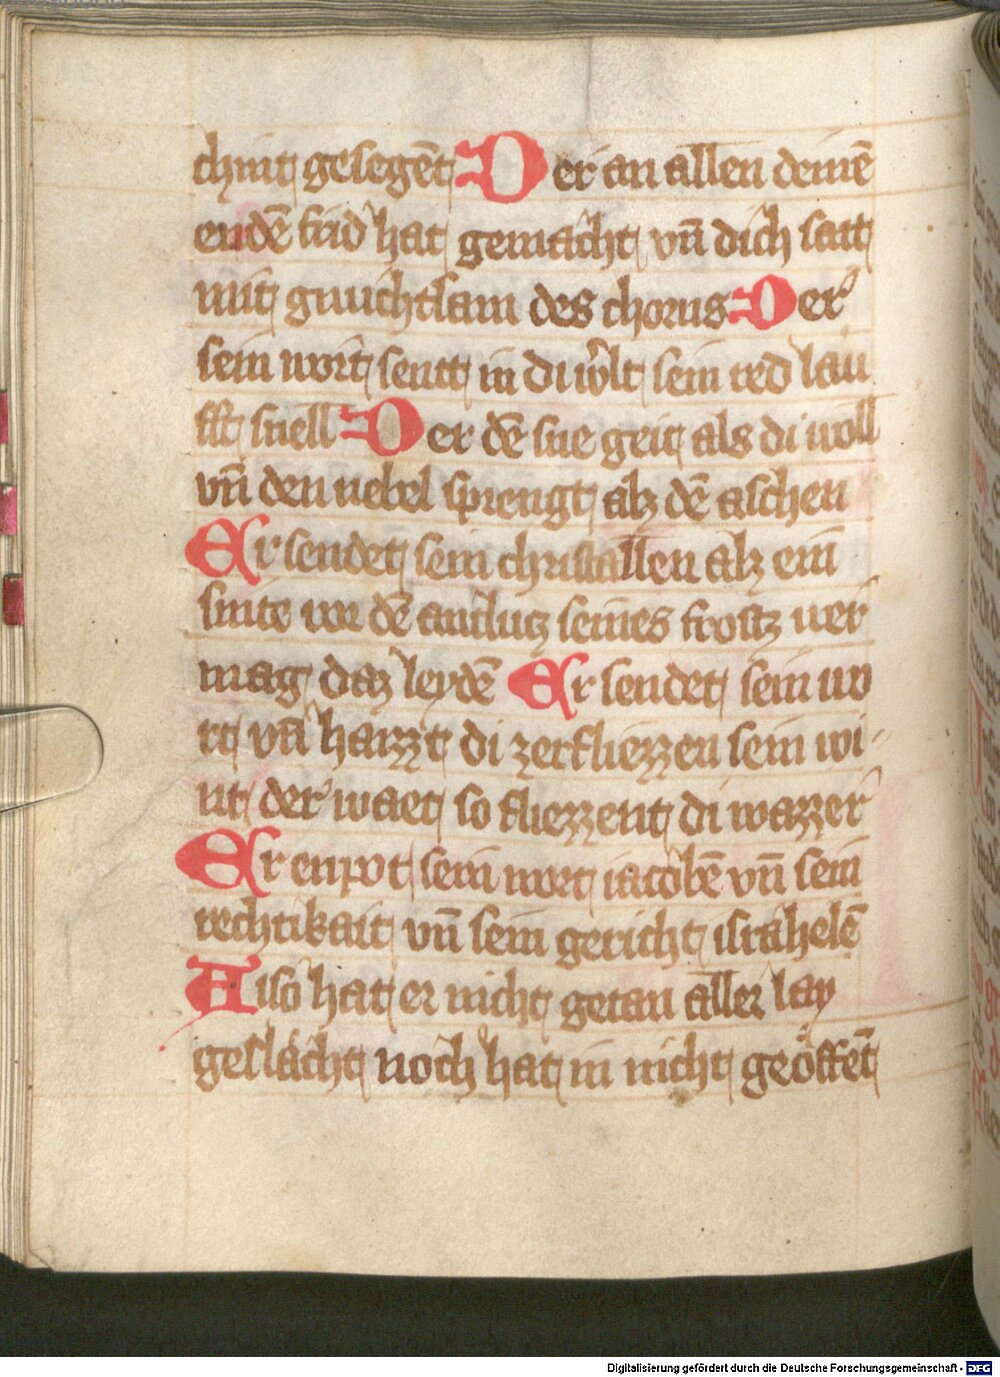 chint gesegēt Der an allen deinē
endē frid hat gemacht vn̄ dich satt
mit gnuchtsam des chorns Der
sein wort sentt in di werlt sein red lau
fft snell Der dē sne geit als di woll
vn̄ den nebel sprengt alz dē aschen
Er sendet sein christallen alz ein
snite vor dē antlucz seines frostz wer
mag daz leydē Er sendet sein wo
rt vn̄ hazzt di zerfliezzen sein wi-
nt der waet so fliezzent di wazzer
Er enpot sein wort iacobē vn̄ sein
rechtikait vn̄ sein gericht israhelē
Also hat er nicht getan aller lay
geslächt noch hat in nicht geöffēt
Digitalisierung gefördert durch die Deutsche Forschungsgemeinschaft - DFG